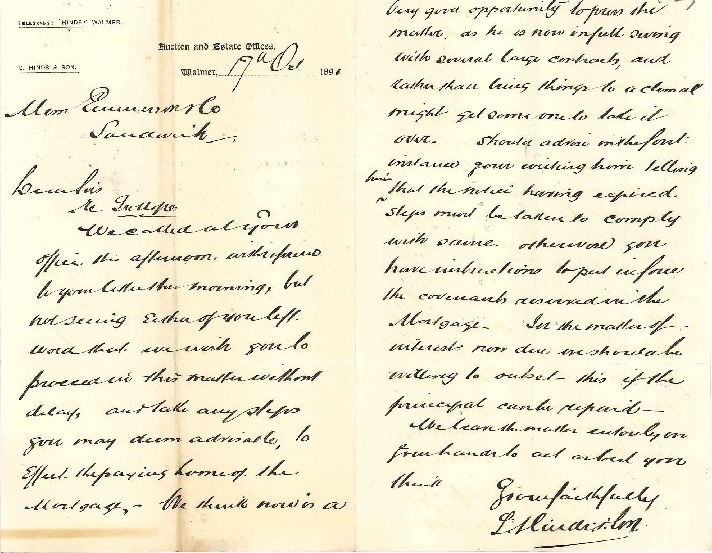 TELEGRAMS: "HINDS," WALMER.
Auction and Estate Offices,
Walmer, 17th Oct 189
HINDS & SON.
Mess Emmerson & Co
Sandwich
Dear Sirs
Re
We called at your
office this afternoon, with reference
to your letter this morning, but
not seeing either of you left
word that we wish you to
proceed in this matter without
delay, and take any steps
you may deem advisable, to
effect the paying home of the
Mortgage,- We think now is a
Very good opportunity to press the
matter, as he is now in full swing
with several large contracts, and
rather than bring things to a climax
might get some one to take it
over. Should advise in the first
instance your writing him telling
him that the notice having expired.
Steps must be taken to comply
with same. otherwise you
have instructions to put in force
the covenants reserved in the
Mortgage- In the matter of
interest now due we should be
willing to - this if the
principal can be repaid-
We leave the matter entirely in
your hands to act as best you
think
Yours faithfully
Hinds & Son